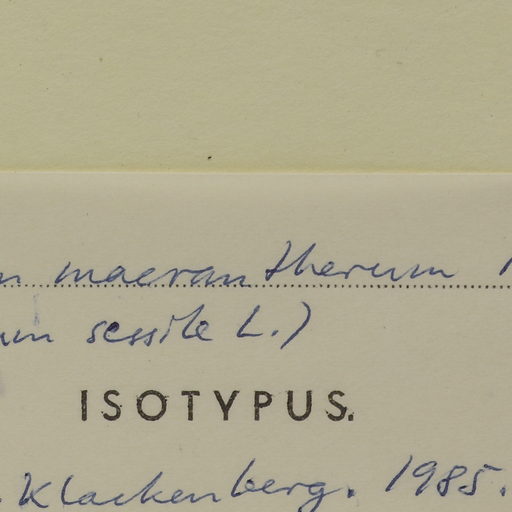 macrantherum
sessile L.)
ISOTYPUS.
Klackenberg. 1985.